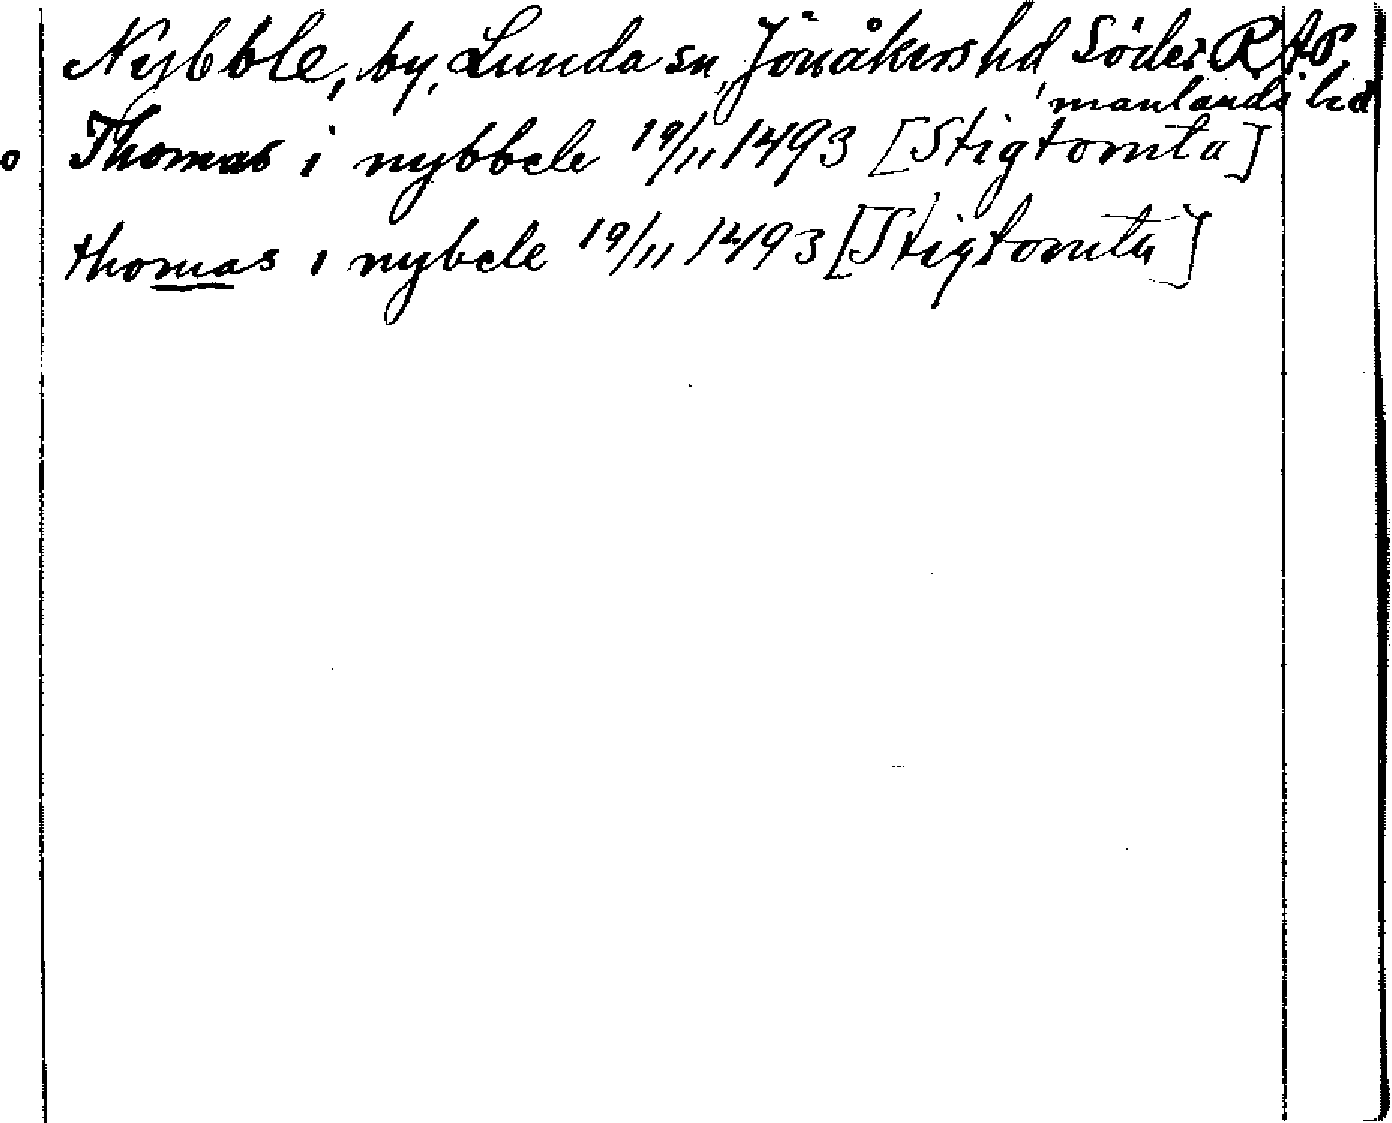 Nybble, by, Lunda sn, Jönåkers hd, Söder RAP
manlands br d
o Thomas i nybbele 19/11 1493 [Stigtomta]
thomas i nybele 19/11 1493 [Stigtomta]